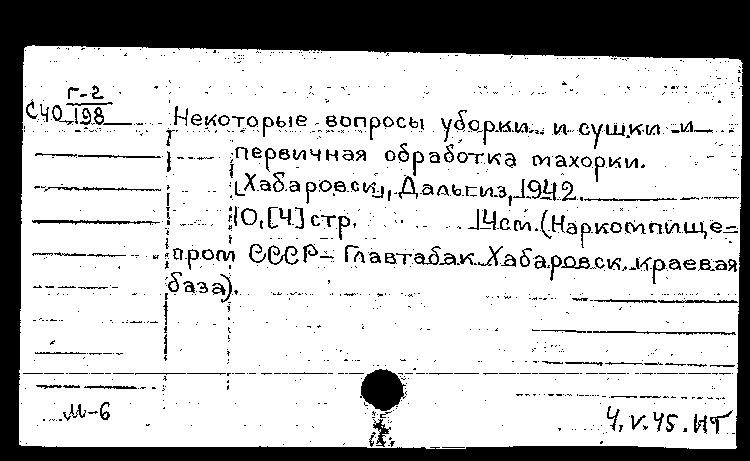 Г-2
С40 198
Некоторые вопросы уборки и сушки и
первичная обработка махорки.
[Хабаровск], Дальгиз, 1942.
10, [4] стр. 14 см. (Наркомпище-
пром СССР – Главтабак Хабаровск. краевая
база).
М-6 4.V.45. НТ